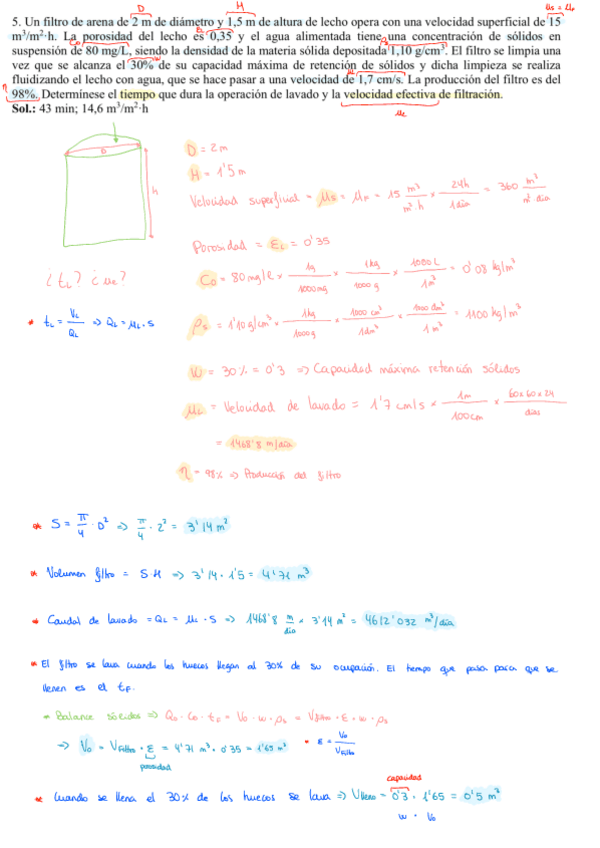 5. Un filtro de arena de 2 m de diámetro y 1,5 m de altura de lecho opera con una velocidad superficial de 15
m³/m²·h. La porosidad del lecho es 0,35 y el agua alimentada tiene una concentración de sólidos en
suspensión de 80 mg/L, siendo la densidad de la materia sólida depositada 1,10 g/cm³. El filtro se limpia una
vez que se alcanza el 30% de su capacidad máxima de retención de sólidos y dicha limpieza se realiza
fluidizando el lecho con agua, que se hace pasar a una velocidad de 1,7 cm/s. La producción del filtro es del
98%. Determínese el tiempo que dura la operación de lavado y la velocidad efectiva de filtración.
Sol.: 43 min; 14,6 m³/m²·h
D = 2m
H = 1'5 m
Velocidad superficial = μs = μF = 15 m³/m²·h × 24h/1día = 360 m³/m² día
Porosidad = εL = 0'35
C₀ = 80mg/l × 1g/1000mg × 1kg/1000g × 1000L/1m³ = 0'08 kg/m³
ρs = 1'10 g/cm³ × 1kg/1000g × 1000 cm³/1dm³ × 1000 dm³/1m³ = 1100 kg/m³
W = 30% = 0'3 => Capacidad máxima retención sólidos
μL = Velocidad de lavado = 1'7 cm/s × 1m/100cm × 60x60x24/días
= 1468'8 m/día
η = 98% => Producción del filtro
D
h
¿tL? ¿ue?
* tL = VL/QL => QL = μL · S
* S = π/4 · D² => π/4 · 2² = 3'14 m²
* Volumen filtro = S·H => 3'14 · 1'5 = 4'71 m³
* Caudal de lavado = QL = μL · S => 1468'8 m/día × 3'14 m² = 4612'032 m³/día
* El filtro se lava cuando los huecos llegan al 30% de su ocupación. El tiempo que pasa para que se
llenen es el tF.
* Balance sólidos => Q₀ · C₀ · tF = V₀ · w · ρs = Vfiltro · ε · w · ρs
=> V₀ = Vfiltro · ε = 4'71 m³ · 0'35 = 1'65 m³ * ε = V₀/Vfiltro
porosidad
capacidad
* Cuando se llena el 30% de los huecos se lava => Vlleno = 0'3 · 1'65 = 0'5 m³
w · V₀